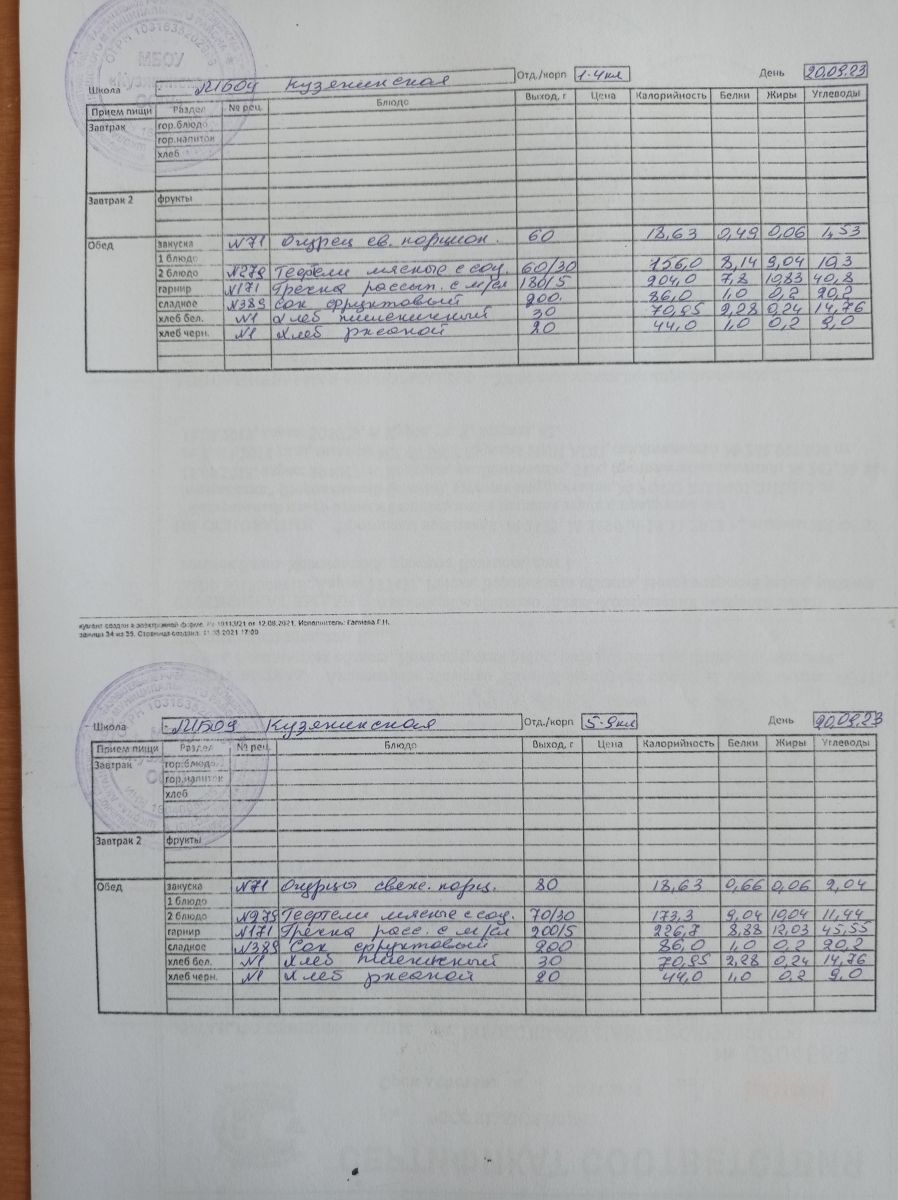 МБОУ
Школа МБОУ Кузякинская Отд./корп 1-4кл День 20.09.23
Прием пищи Раздел № рец. Блюдо Выход, г Цена Калорийность Белки Жиры Углеводы
Завтрак гор.блюдо
гор.напиток
хлеб
Завтрак 2 фрукты
Обед закуска №71 Огурец св. порцион. 60 18,63 0,49 0,06 1,53
1 блюдо
2 блюдо №279 Тефтели мясные с соу. 60/30 156,0 8,14 9,04 10,3
гарнир №171 Гречка рассып. с м/сл 180/5 204,0 7,8 10,83 40,8
сладкое №389 Сок фруктовый 200. 86,0 1,0 0,2 20,2
хлеб бел. №1 Хлеб пшеничный 30 70,85 2,28 0,24 14,76
хлеб черн. №1 Хлеб ржаной 20 44,0 1,0 0,2 9,0
кумент создан в электронной форме. № 1913/21 от 12.08.2021. Исполнитель: Галиева Г.Н.
раница 34 из 35. Страница создана: 11.08.2021 17:00
Школа МБОУ Кузякинская Отд./корп 5-9кл День 20.09.23
Прием пищи Раздел № рец. Блюдо Выход, г Цена Калорийность Белки Жиры Углеводы
Завтрак гор.блюдо
гор.напиток
хлеб
Завтрак 2 фрукты
Обед закуска №71 Огурцы свеж. порц. 80 18,63 0,66 0,06 2,04
1 блюдо
2 блюдо №279 Тефтели мясные с соу. 70/30 173,3 9,04 10,04 11,44
гарнир №171 Гречка расс. с м/сл 200/5 226,7 8,88 12,03 45,55
сладкое №389 Сок фруктовый 200 86,0 1,0 0,2 20,2
хлеб бел. №1 Хлеб пшеничный 30 70,85 2,28 0,24 14,76
хлеб черн. №1 Хлеб ржаной 20 44,0 1,0 0,2 9,0